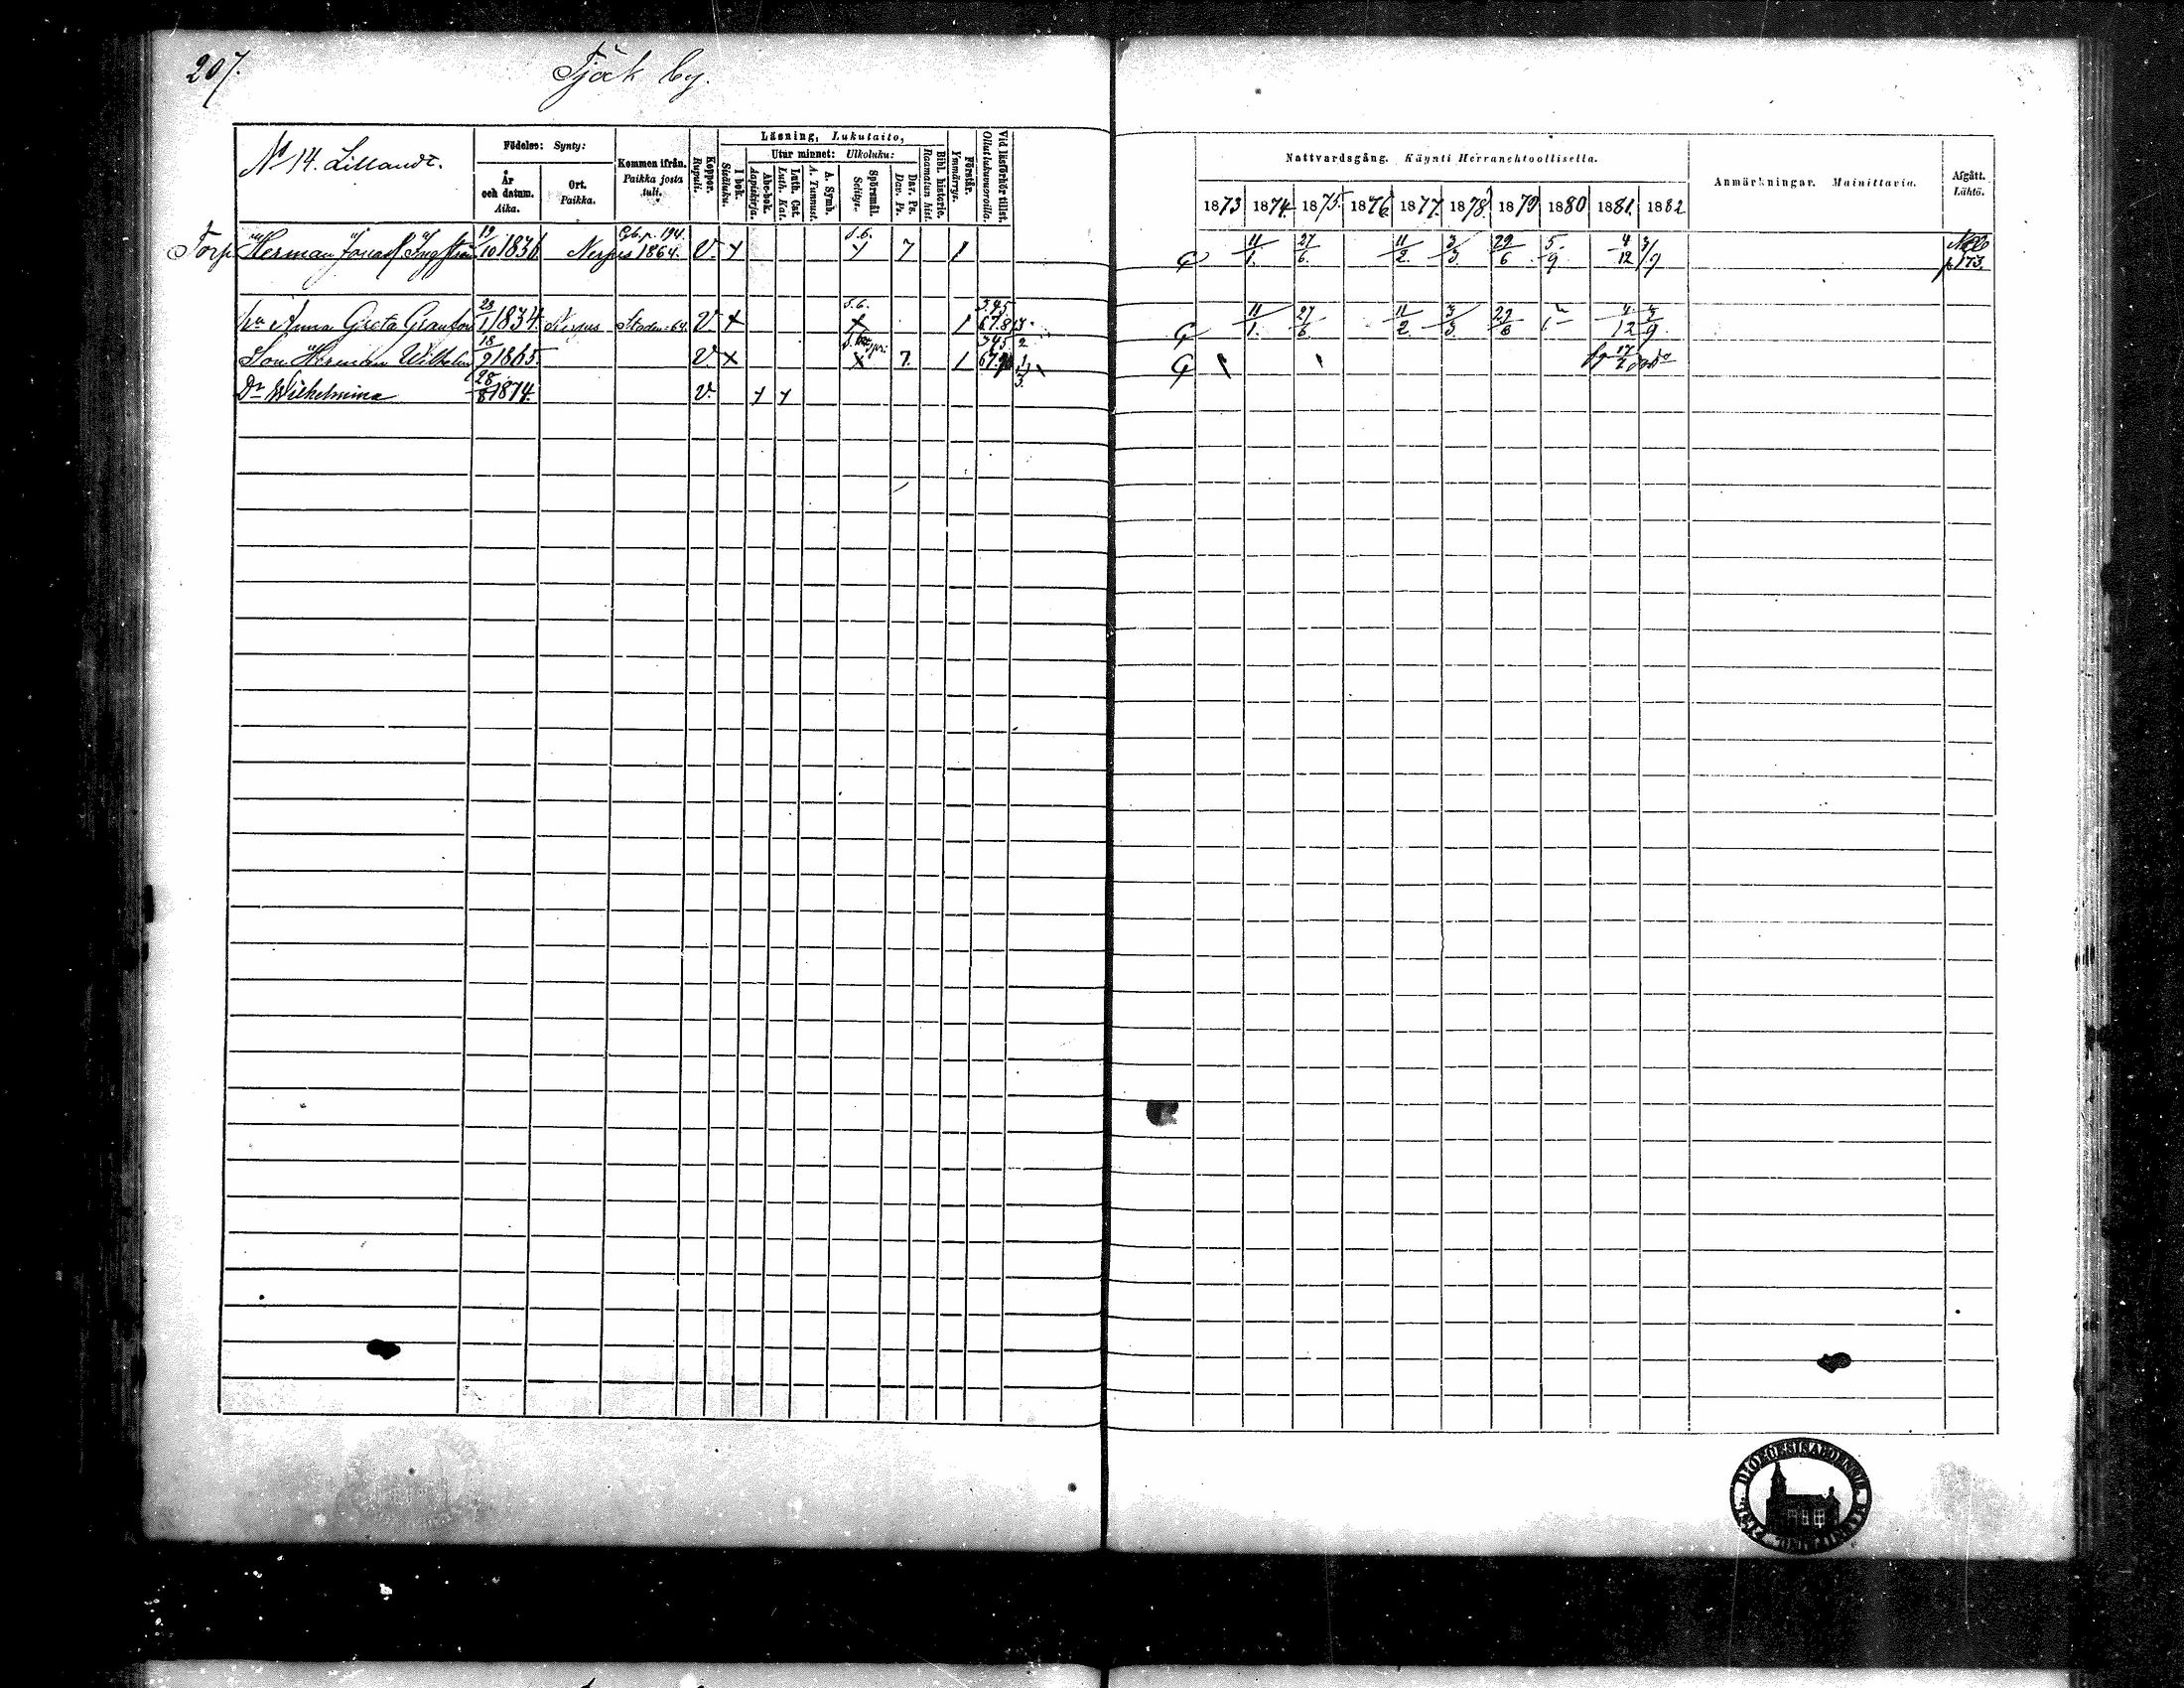 207.
Tjöck by.
No 14. Lillandt.
Födelse: Synty:
År och datum. Aika.
Ort. Paikka.
Kommen ifrån. Paikka josta tuli.
Koppor. Rupuli.
Läsning, Lukutaito,
I bok. Sisäluku.
Utur minnet: Ulkoluku:
Abc-bok. Aapiskirja.
Luth. Cat. Luth. Kat.
A. Symb. A. Tunnust.
Spörsmål. Selitys.
Dav. Ps. Dav. Ps.
Bibl. historie. Raamatun hist.
Förstår. Ymmärrys.
Vid läsförhör tillst. Ollut lukuvuoroilla.
Nattvardsgång. Käynti Herranehtoollisella.
1873 1874 1875 1876 1877 1878 1879 1880 1881 1882
Anmärkningar. Mainittavia.
Afgått. Lähtö.
Torp. Herman Jonass 19/10 1836 Nerpes 1864. Gb. p. 194. V. x s.b. x 7 1 11/1. 27/6. 11/2. 3/3. 29/6 5/9 4/12 3/9 p 173.
hu Anna Greta 23/1 1834. Nerpes Staden 64. V x s.b. x 1 345 678 11/1. 27/6. 11/2. 3/3. 29/6 4/12 9.
Son Herman Wilhelm 18/9 1865. V. x x 7. 1 345 17/2
Dr Wilhelmina 28/8 1874. V. x x